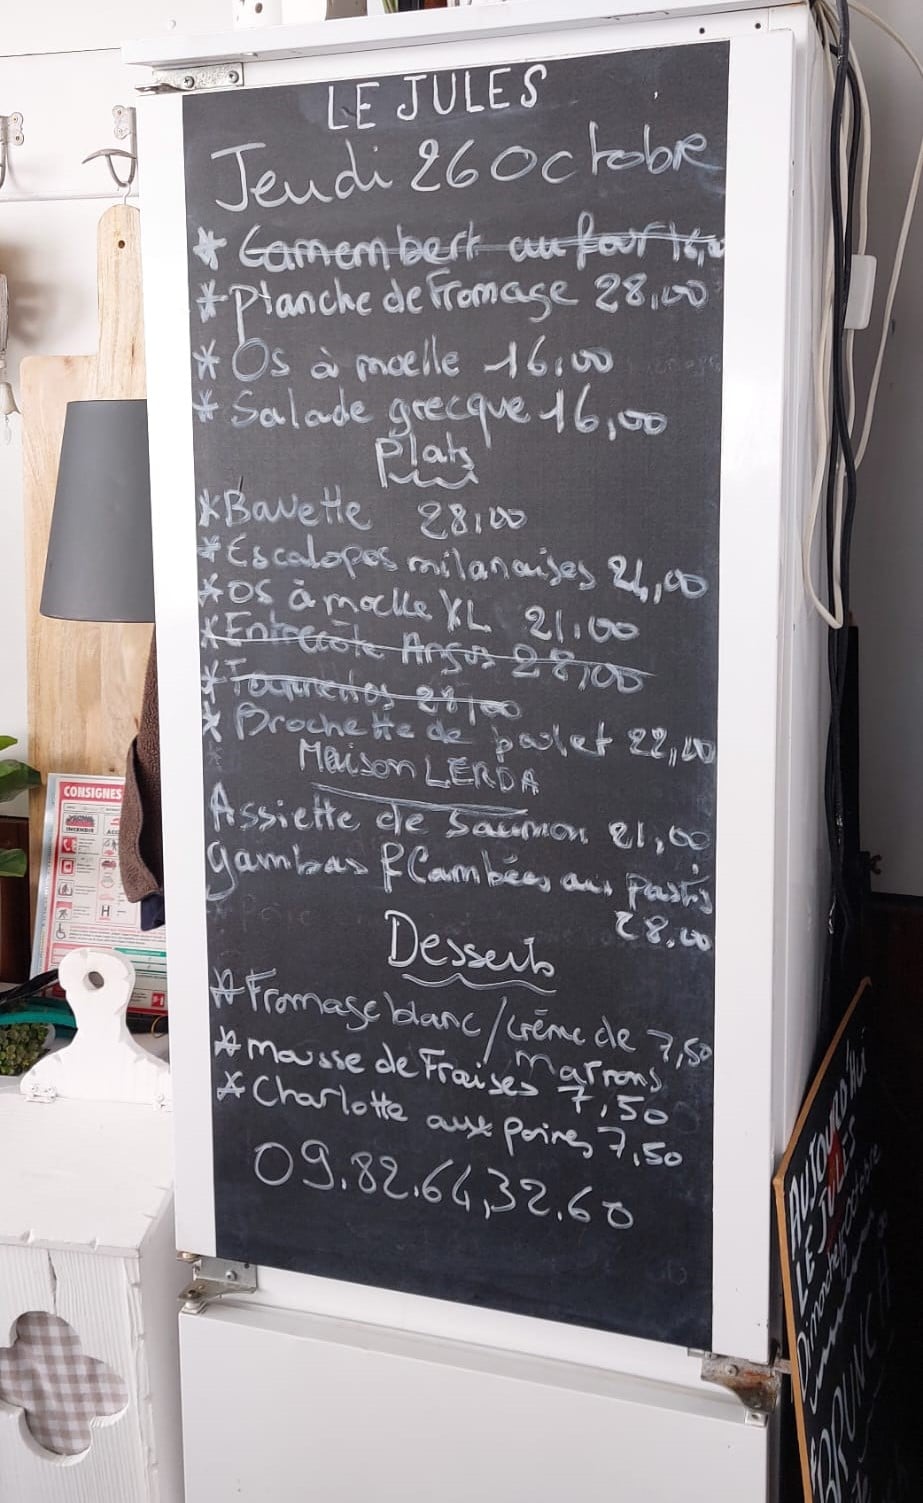 LE JULES
Jeudi 26 Octobre
* Camembert au four 16,0
* Planche de Fromage 28,00
* Os à moelle 16,00
* Salade grecque 16,00
Plats
* Bavette 28,00
* Escalopes milanaises 24,00
* OS à moelle XL 21,00
* Entrecôte Angus 28,00
* Tournedos 28,00
* Brochette de poulet 22,00
Maison LERDA
Assiette de saumon 21,00
Gambas flambées au pastis
28.00
Desserts
* Fromage blanc / Crème de 7,50
marrons
* Mousse de Fraises 7,50
* Charlotte aux poires 7,50
09.82.64,32.60
CONSIGNES
AUJOURD'HUI
LE JULES
Dimanche octobre
BRUNCH